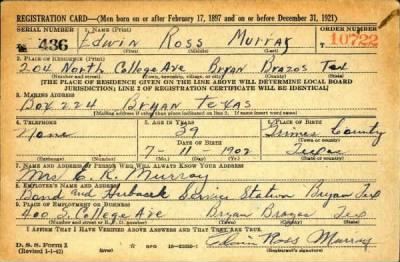 REGISTRATION CARD—(Men born on or after February 17, 1897 and on or before December 31, 1921)
SERIAL NUMBER 1. NAME (Print) ORDER NUMBER
436 Edwin Ross Murray 10722
(First) (Middle) (Last)
2. PLACE OF RESIDENCE (Print)
204 North College Ave Bryan Brazos Tex
(Number and street) (Town, township, village, or city) (County) (State)
[THE PLACE OF RESIDENCE GIVEN ON THE LINE ABOVE WILL DETERMINE LOCAL BOARD
JURISDICTION; LINE 2 OF REGISTRATION CERTIFICATE WILL BE IDENTICAL]
3. MAILING ADDRESS
Box 224 Bryan Texas
(Mailing address if other than place indicated on line 2. If same insert word same)
4. TELEPHONE 5. AGE IN YEARS 6. PLACE OF BIRTH
None 39 Grimes County
DATE OF BIRTH (Town or county)
7-11-1902 Texas
(Exchange) (Number) (Mo.) (Day) (Yr.) (State or country)
7. NAME AND ADDRESS OF PERSON WHO WILL ALWAYS KNOW YOUR ADDRESS
Mrs E. R. Murray
8. EMPLOYER'S NAME AND ADDRESS
Bond and Service Station Bryan Tex
9. PLACE OF EMPLOYMENT OR BUSINESS
400 S. College Ave Bryan Brazos Tex
(Number and street or R. F. D. number) (Town) (County) (State)
I AFFIRM THAT I HAVE VERIFIED ABOVE ANSWERS AND THAT THEY ARE TRUE.
D. S. S. Form 1
(Revised 1-1-42) (over) Edwin Ross Murray
(Registrant's signature)